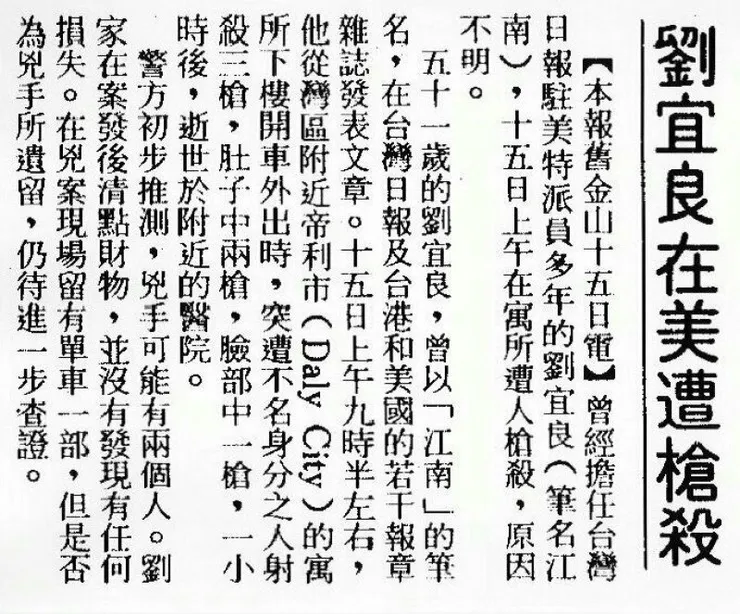 劉宜良在美遭槍殺
【本報舊金山十五日電】曾經擔任台灣
日報駐美特派員多年的劉宜良（筆名江
南），十五日上午在寓所遭人槍殺，原因
不明。
五十一歲的劉宜良，曾以「江南」的筆
名，在台灣日報及台港和美國的若干報章
雜誌發表文章。十五日上午九時半左右，
他從灣區附近帝利市（Daly City）的寓
所下樓開車外出時，突遭不名身分之人射
殺三槍，肚子中兩槍，臉部中一槍，一小
時後，逝世於附近的醫院。
警方初步推測，兇手可能有兩個人。劉
家在案發後清點財物，並沒有發現有任何
損失。在兇案現場留有單車一部，但是否
為兇手所遺留，仍待進一步查證。